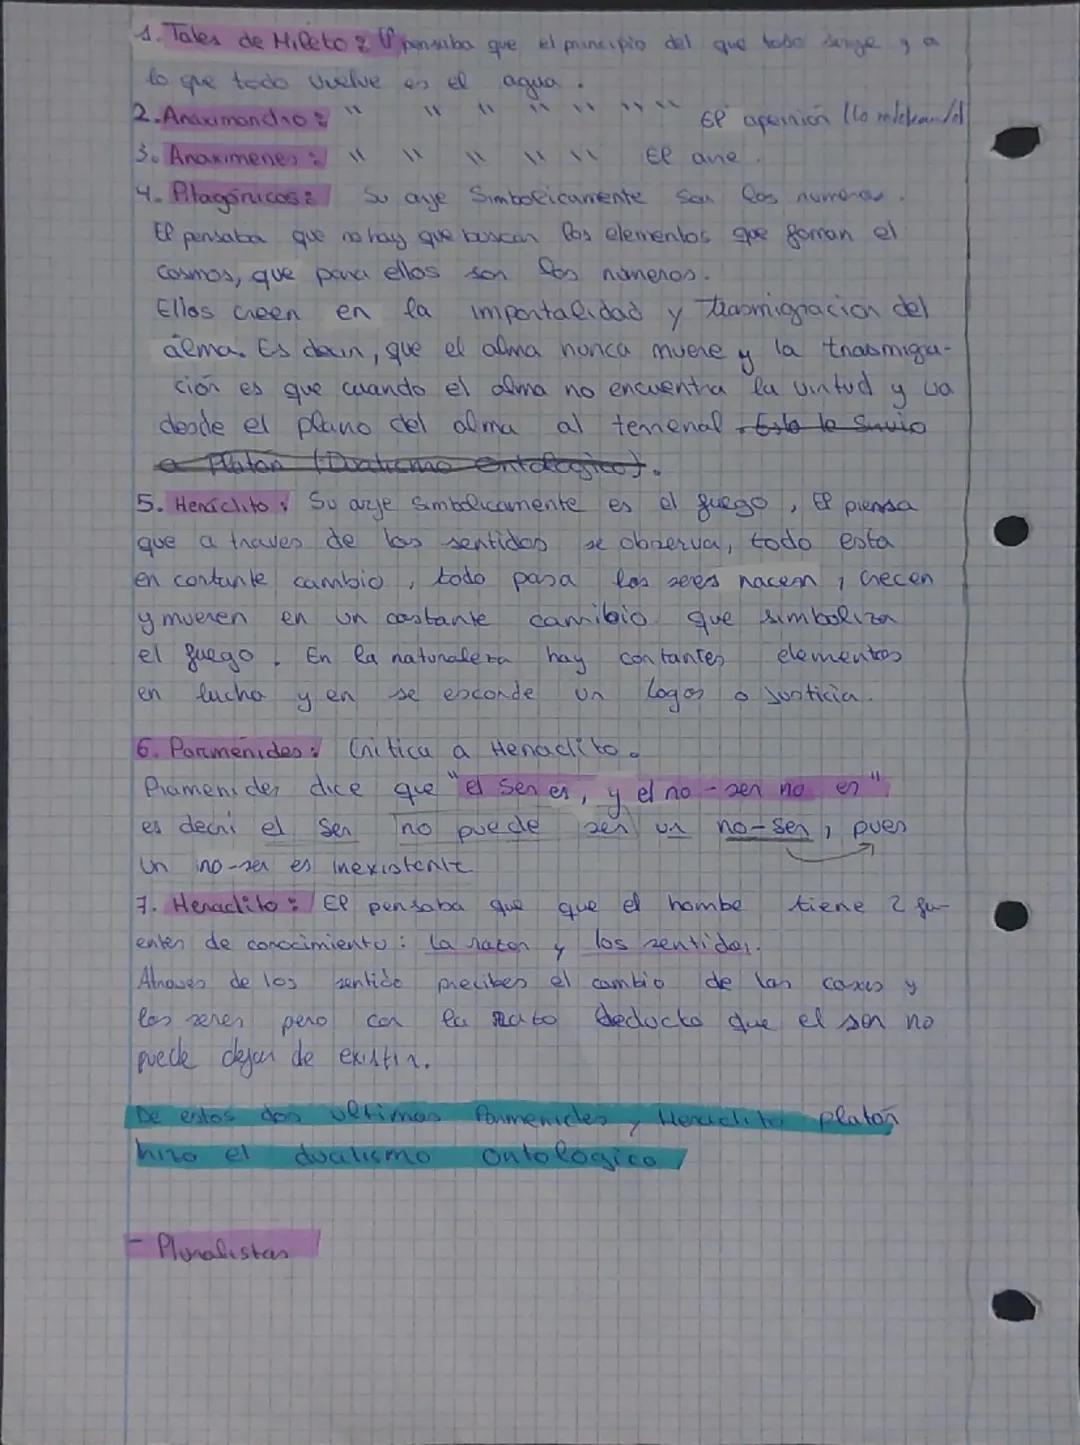 1. Tales de Mileto: El pensaba que el principio del que todo surge y a
lo que todo vuelve es el agua.
2. Anaximandro: " " " " " " " El apeirión (lo
3. Anaximenes: " " " " " El aire.
4. Pitagóricos: Su arje Simbolicamente son los numeros.
El pensaba que no hay que buscar los elementos que forman el
cosmos, que para ellos son los números.
Ellos creen en la importalidad y trasmigracion del
álma. Es decir, que el alma nunca muere y la trasmigra-
ción es que cuando el alma no encuentra la virtud y va
desde el plano del alma al terrenal. Esto le Sirvio
a Platon (Dualismo ontologico).
5. Heráclito: Su arje simbolicamente es el fuego, El piensa
que a traves de los sentidos se observa, todo esta
en contante cambio, todo pasa los seres nacen, crecen
y mueren en un costante cambio que simboliza
el fuego. En la naturaleza hay contantes elementos
en lucha y en se esconde un logos o justicia.
6. Parmenides: Critica a Heraclito.
Pramenides dice que "el Ser es, y el no-ser no es"
es decri el Ser no puede ser un no-ser, pues
un no-ser es inexistente
7. Heraclito: El pensaba que que el hombe tiene 2 fu-
entes de conocimiento: la razon y los sentidos.
Atraves de los sentido precibes el cambio de las cosas y
los seres pero con la razo deducto que el ser no
puede dejar de existir.
De estos dos ultimos Parmenides y Heraclito platón
hizo el dualismo ontologico
- Pluralistas